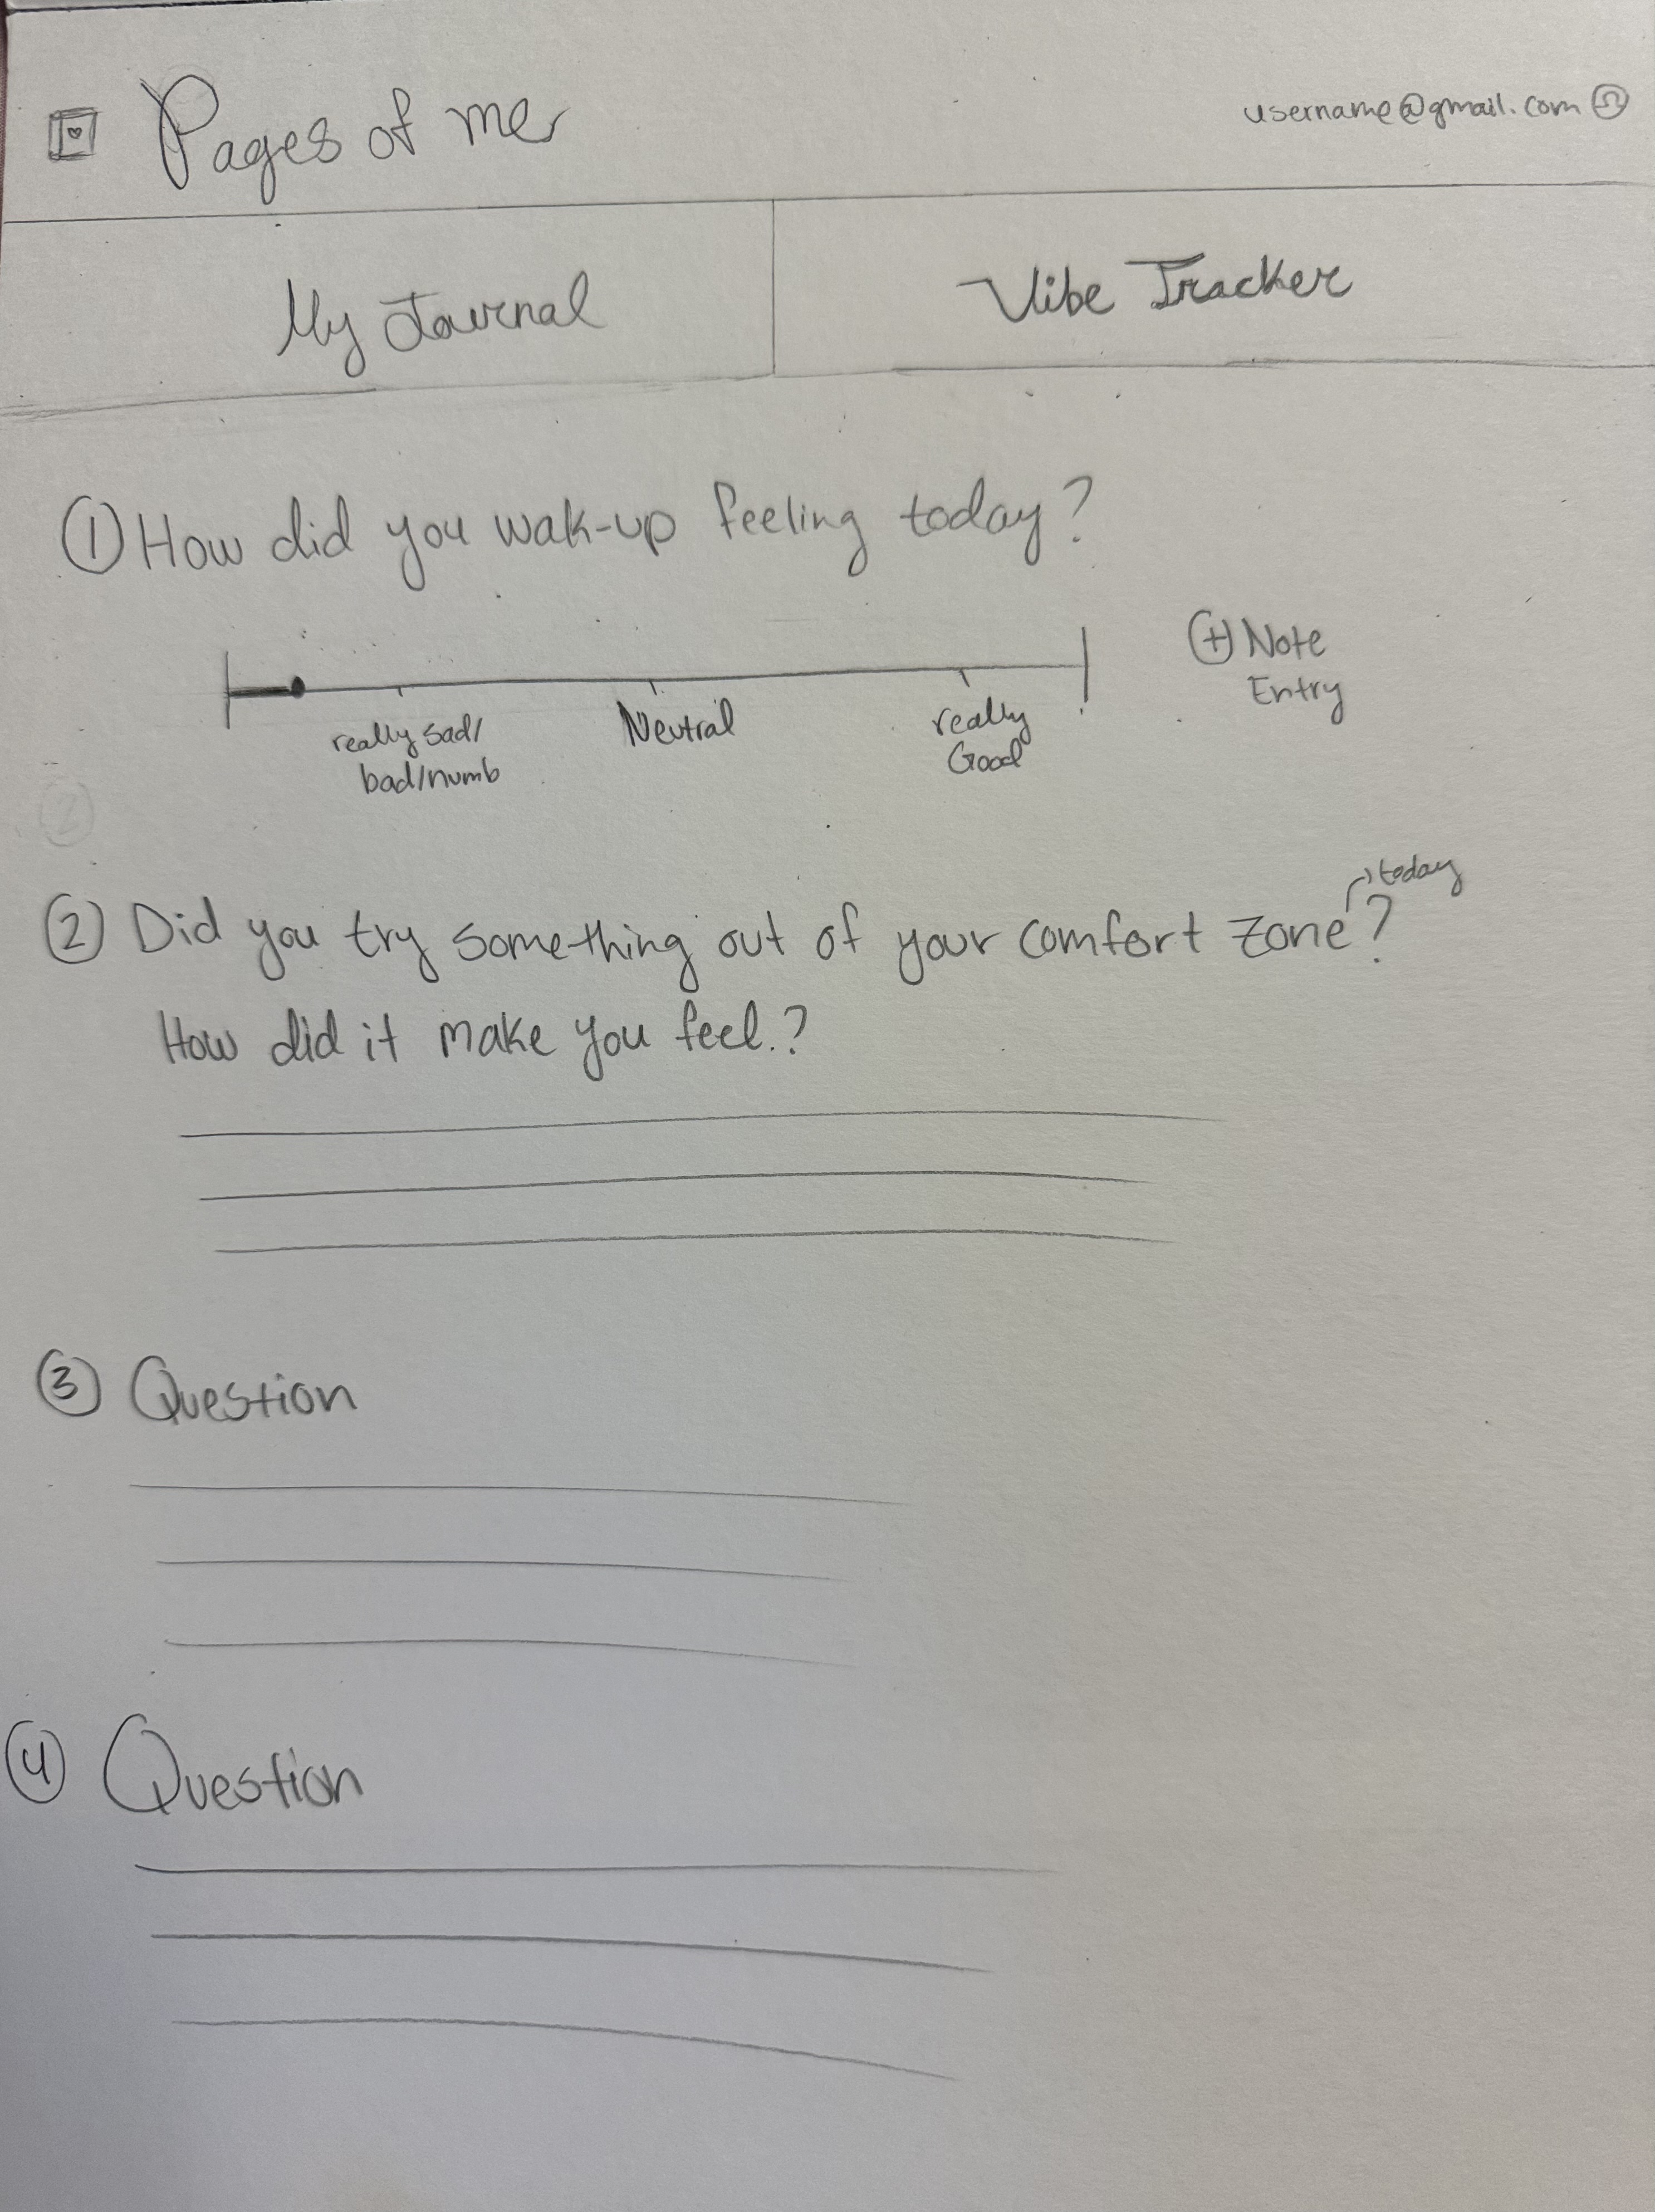 Pages of me
username@gmail.com
My Journal
Vibe Tracker
① How did you wak-up feeling today?
+ Note
Entry
really sad/
bad/numb
Neutral
really
Good
2
today
② Did you try something out of your comfort zone?
How did it make you feel.?
③ Question
④ Question